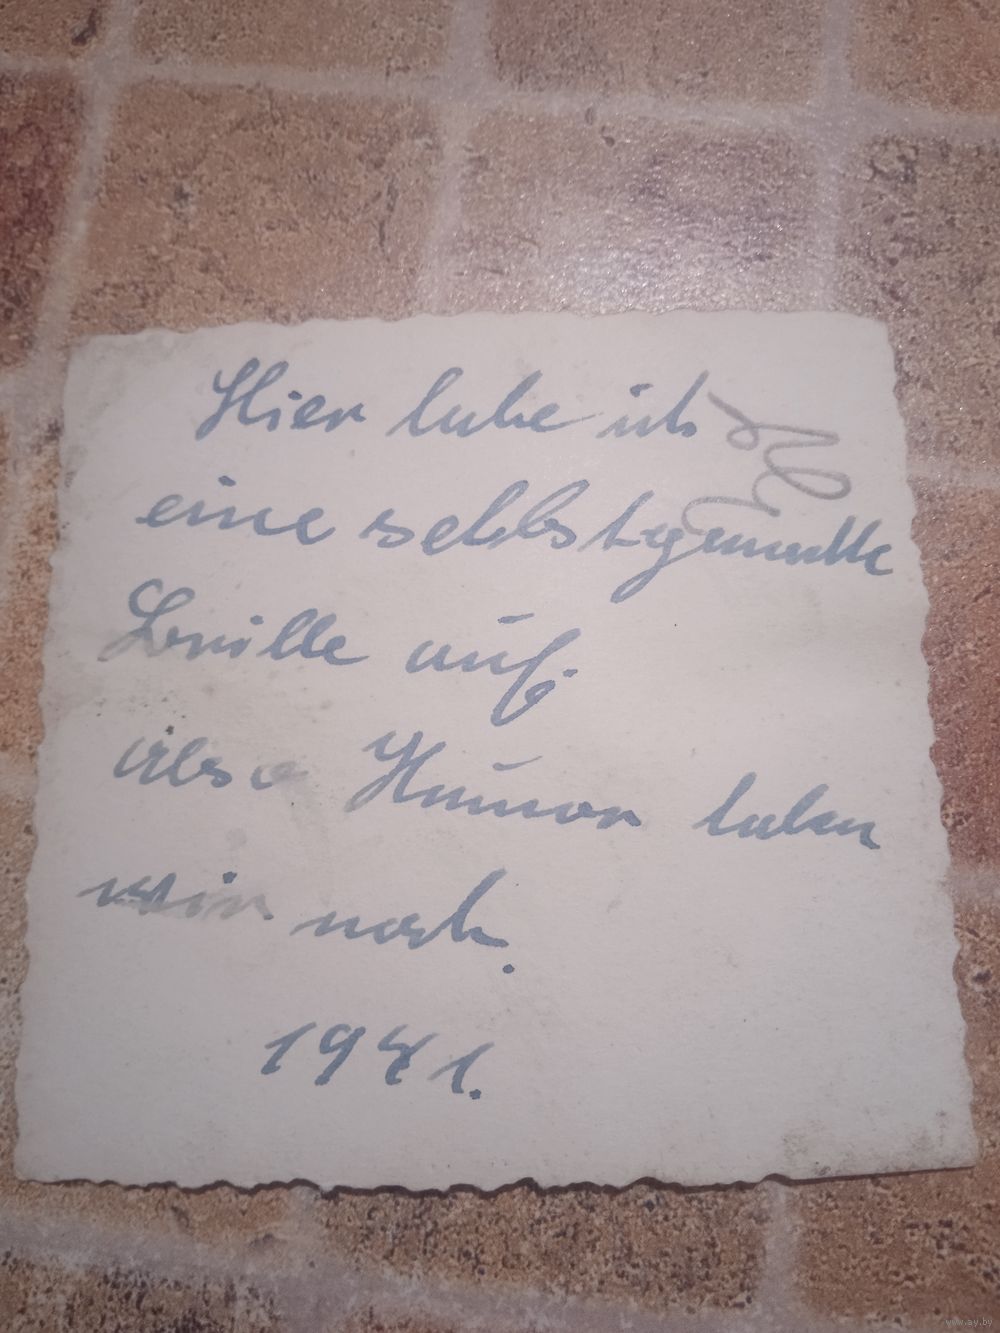 Hier habe ich
eine selbstgemachte
Brille auf.
Also Humor haben
wir noch.
1941.
www.ay.by